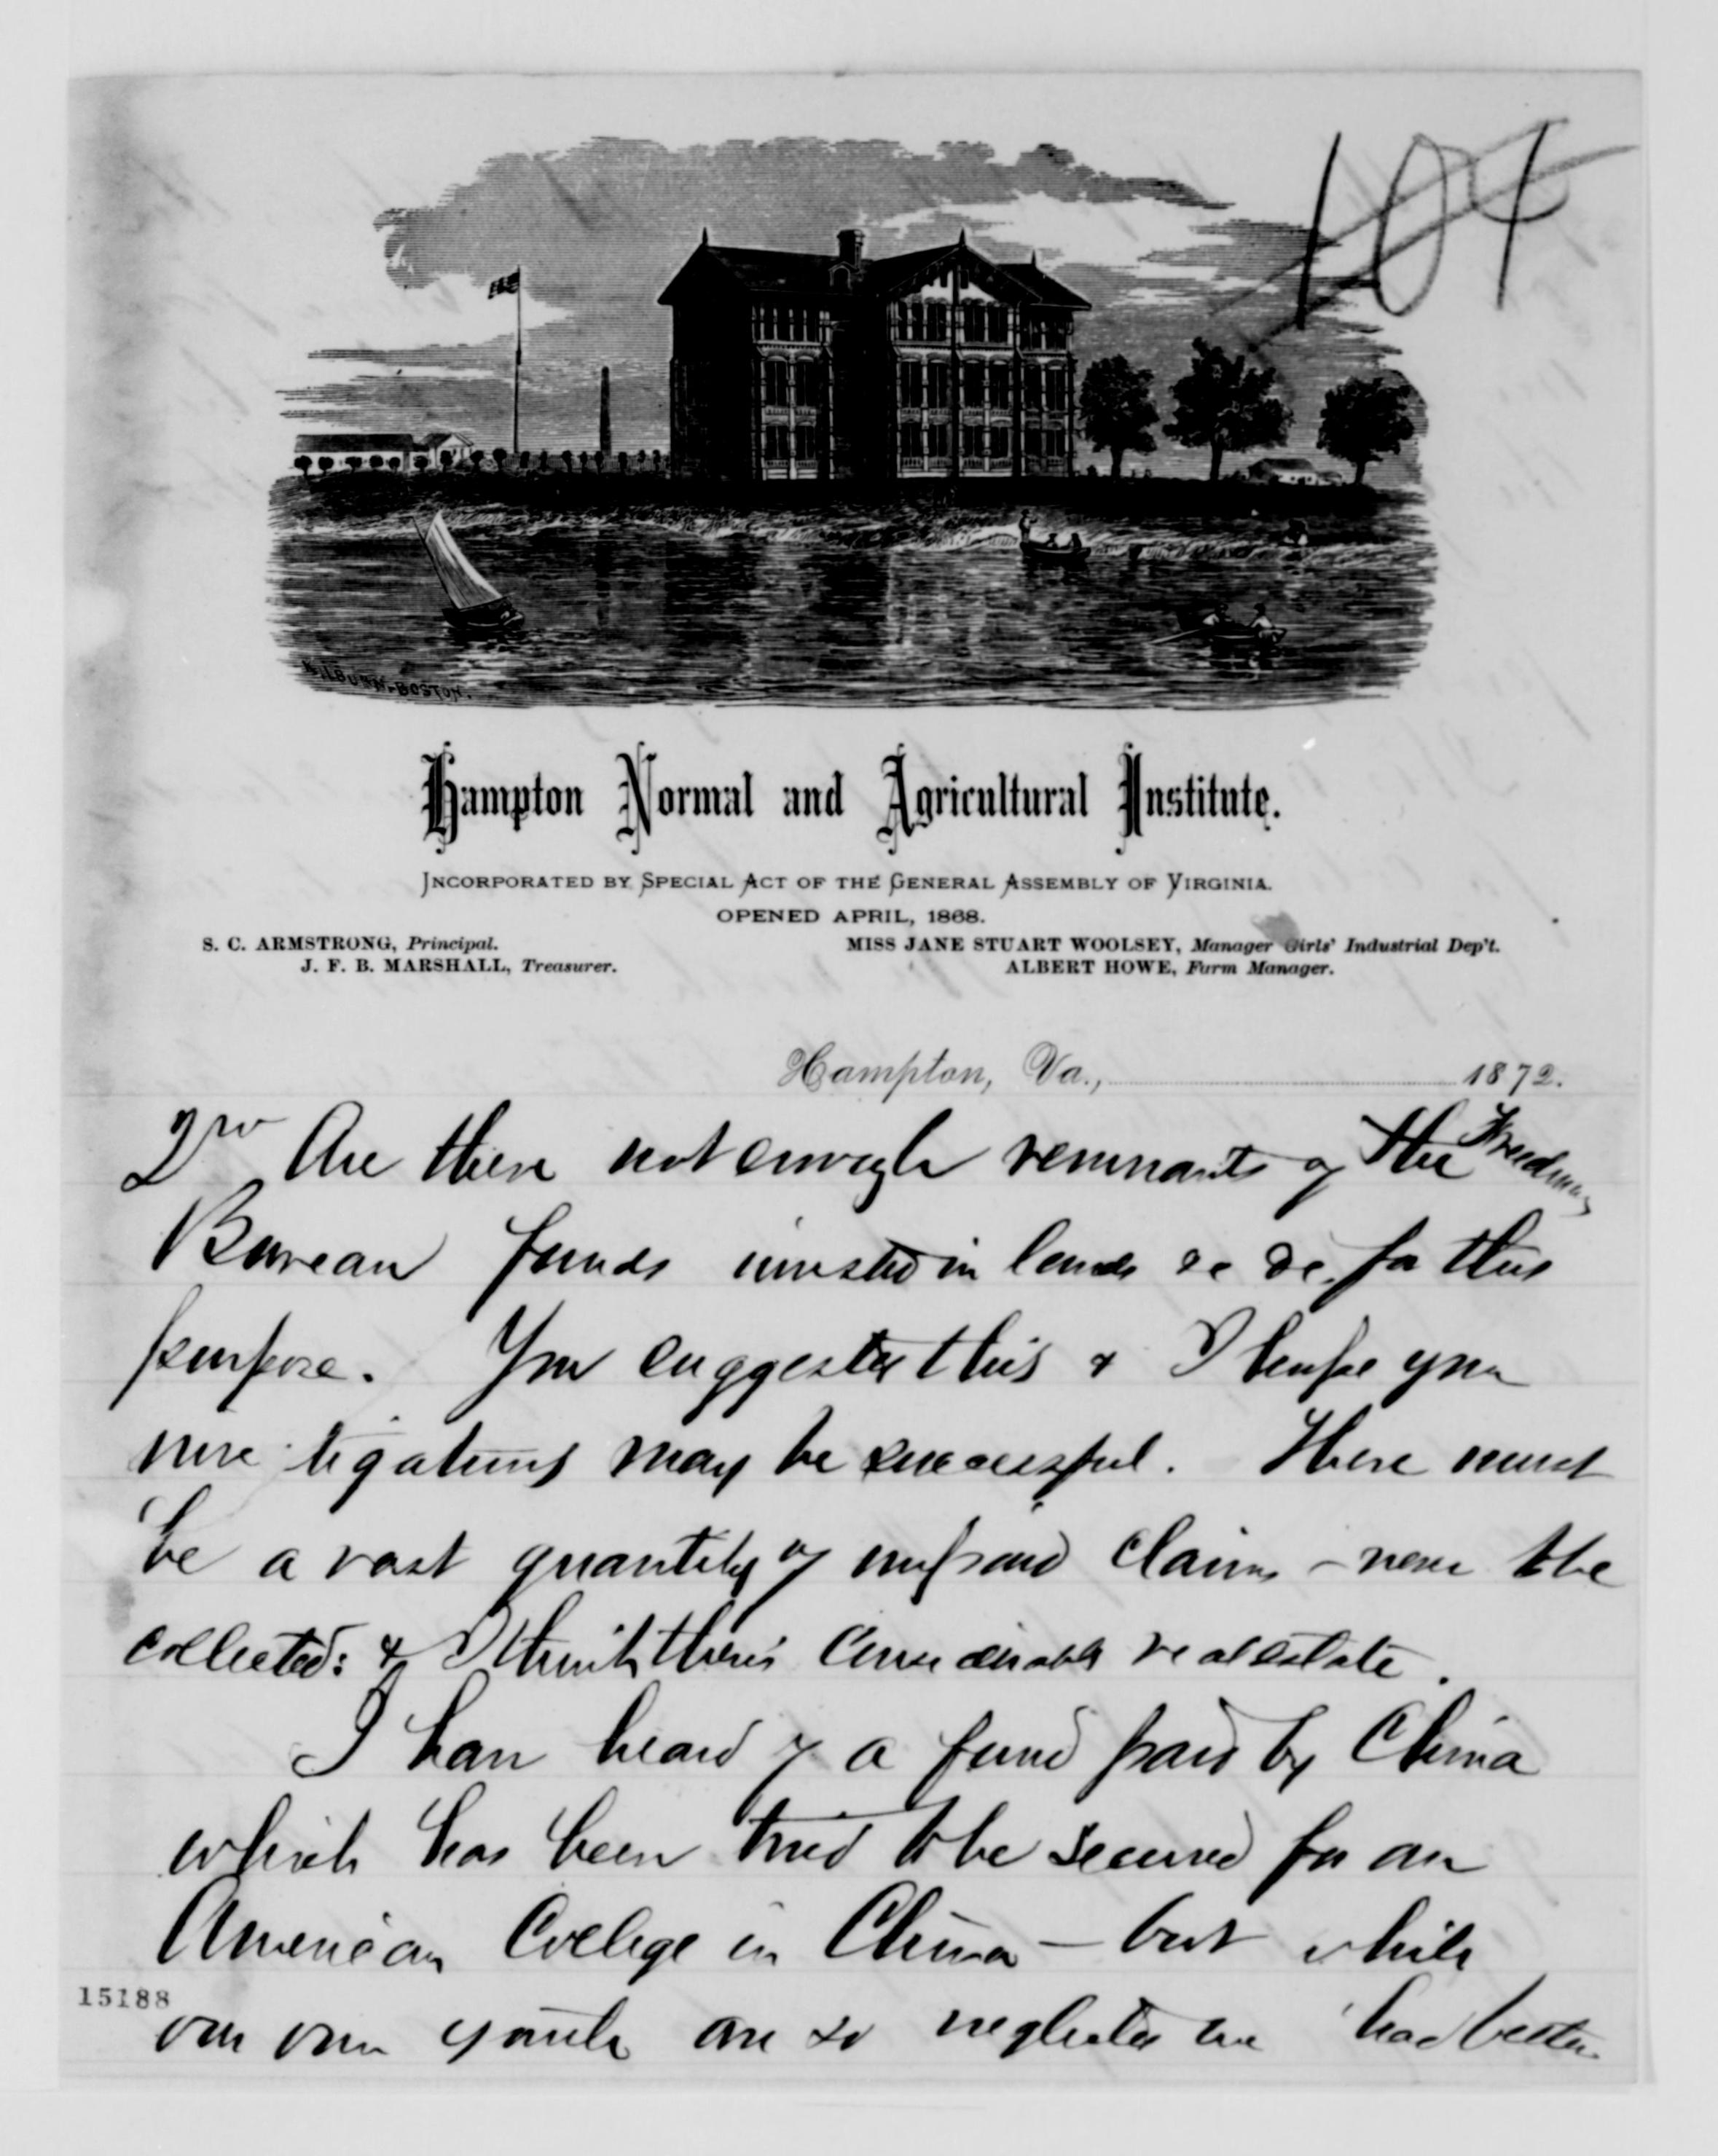 104
KILBURN-BOSTON.
Hampton Normal and Agricultural Institute.
INCORPORATED BY SPECIAL ACT OF THE GENERAL ASSEMBLY OF VIRGINIA.
OPENED APRIL, 1868.
S. C. ARMSTRONG, Principal.
J. F. B. MARSHALL, Treasurer.
MISS JANE STUART WOOLSEY, Manager Girls' Industrial Dep't.
ALBERT HOWE, Farm Manager.
Hampton, Va., 1872.
Are there not enough remnants of the Freedmens
Bureau funds invested in lands &c &c. for this
purpose. You suggested this & I hope your
investigations may be successful. There must
be a vast quantity of unpaid claims - never to be
collected: & I think there is considerable real estate.
I have heard of a fund paid by China
which has been tried to be secured for an
American College in China - but while
our own youth are so neglected we had better
15188